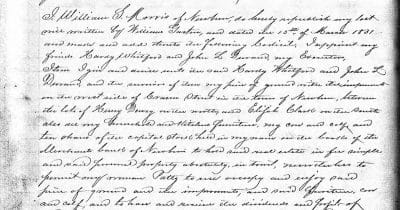 I William S. Morris of Newbern, do hereby republish my last
will written by William Gaston and dated the 15th of March 1831
and make and add thereto the following Codicil. I appoint my
friends Hardy Whitford and John L. Durand my Executors.
Item I give and devise unto the said Hardy Whitford and John L
Durand and the survivor of them my piece of ground with the improvements
on the west side of Craven Street in the town of Newbern, between
the lots of Henry on the north, and Elijah Clark on the South
also all my Household and Kitchen furniture, my cow and calf and
ten shares of the capital stock held in my name in the bank of the
Merchants bank of Newbern to hold said real estate in fee simple
and said personal property absolutely, in trust, nevertheless to
permit my woman Patty to use occupy and enjoy said
piece of ground and the improvements, and said furniture, cow
and calf, and to have and receive the dividends and profit of